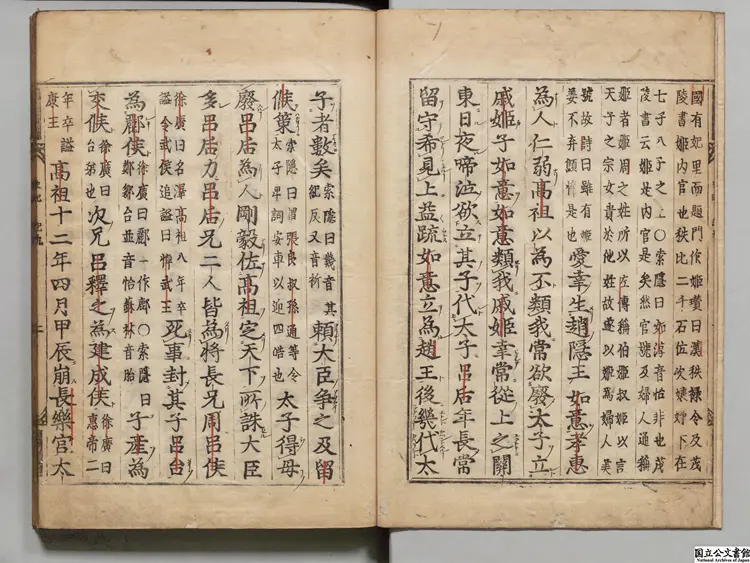 國有妃里而題門作姬瓚曰漢秩祿令及茂
陵書姬內官也秩比二千石位次婕妤下在
七子八子之上〇索隱曰如淳音怡非也茂
陵書云姬是內官是矣然官號及婦人通稱
姬者周之姓所以左傳稱伯姬叔姬以言
天子之宗女貴於他姓故遂以姬為婦人美
號故詩曰雖有姬
姜不弃顦顇是也
愛幸生趙隱王如意孝惠
為人仁弱高祖以為不類我常欲廢太子立
戚姬子如意如意類我戚姬幸常從上之關
東日夜啼泣欲立其子代太子呂后年長當
留守希見上益疏如意立為趙王後幾代太
子者數矣
索隱曰幾音其
紀反又音祈
賴大臣爭之及留
侯策
索隱曰謂張良叔孫通等令
太子卑詞安車以迎四皓也
太子得毋
廢呂后為人剛毅佐高祖定天下所誅大臣
多呂后力呂后兄二人皆為將長兄周呂侯
徐廣曰名澤高祖八年卒
謚令武侯追謚曰悼武王
死事封其子呂台
為酈侯
徐廣曰酈一作鄜〇索隱曰
鄭鄒台並音怡蘇林音胎
子產為
交侯
徐廣曰
台弟也
次兄呂釋之為建成侯
徐廣曰
惠帝二
年卒謚
康王
高祖十二年四月甲辰崩長樂宮太
国立公文書館
National Archives of Japan